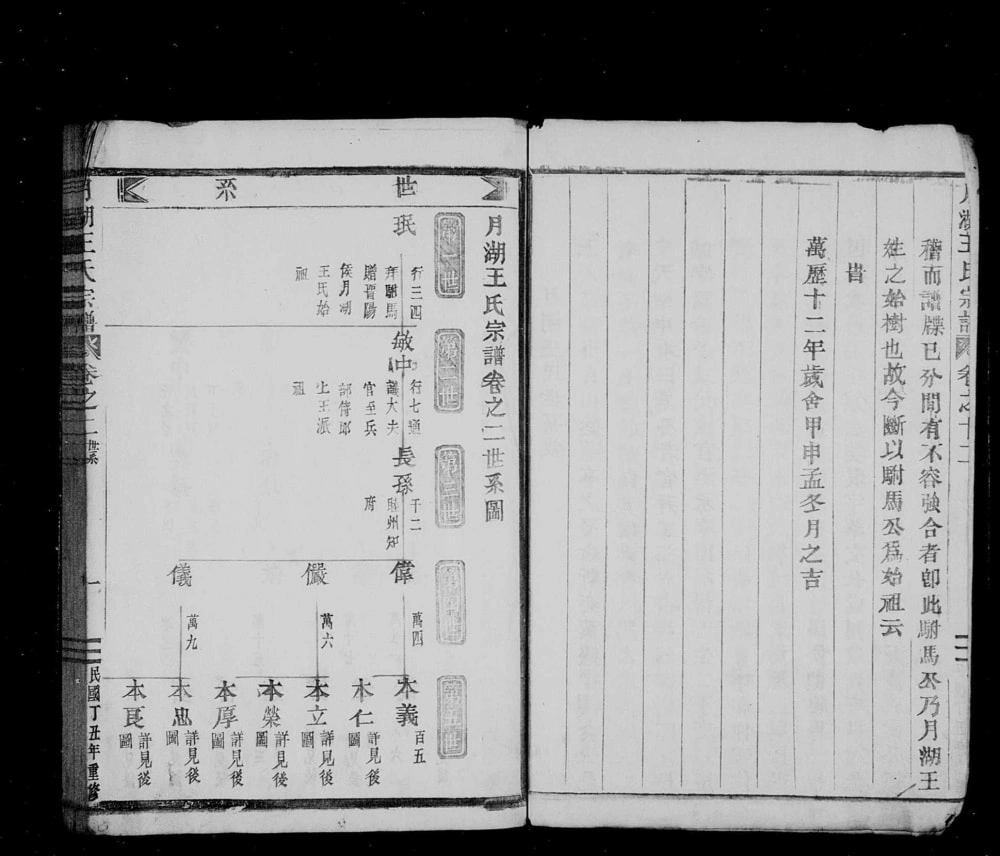 稽而譜牒已分間有不容強合者卽此駙馬公乃月湖王
姓之始樹也故今斷以駙馬公爲始祖云
旹
萬歷十二年歲舍甲申孟冬月之吉
月湖王氏宗譜卷之二世系圖
世系
第一世
珉
行三四
拜駙馬
贈晋陽
侯月湖
王氏始
祖
第二世
敏中
行七通
議大夫
官至兵
部侍郎
上王派
祖
第三世
長孫
千二
州知
府
第四世
偉
萬四
儼
萬六
儀
萬九
第五世
本義
百五
本仁
詳見後
圖
本立
詳見後
圖
本榮
詳見後
圖
本厚
詳見後
圖
本忠
詳見後
圖
本良
詳見後
圖
月湖王氏宗譜
卷之二
世系
一
民國丁丑年重修